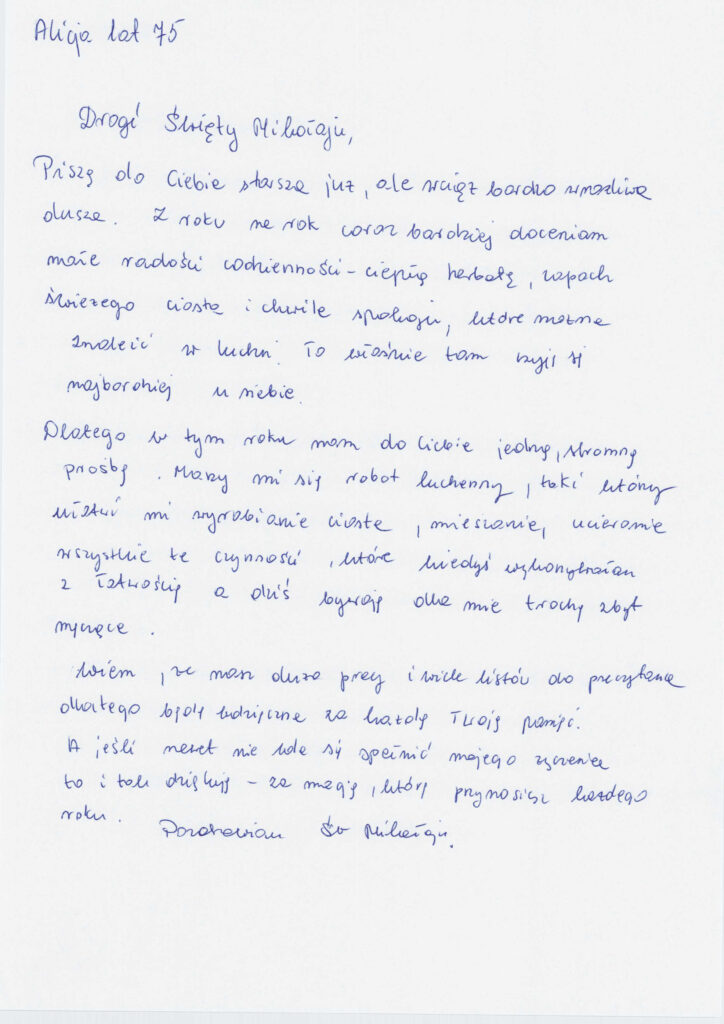 Alicja lat 75
Drogi Święty Mikołaju,
Piszę do Ciebie starsza już, ale wciąż bardzo wrażliwa
dusza. Z roku na rok coraz bardziej doceniam
małe radości codzienności - ciepłą herbatę, zapach
świeżego ciasta i chwile spokoju, które można
znaleźć w kuchni. To właśnie tam czuję się
najbardziej u siebie.
Dlatego w tym roku mam do Ciebie jedną, skromną
prośbę. Marzy mi się robot kuchenny, taki który
ułatwi mi wyrabianie ciasta, mieszanie, ucieranie
wszystkie te czynności, które kiedyś wykonywałam
z łatwością a dziś bywają dla mnie trochę zbyt
męczące.
Wiem, że masz dużo pracy i wiele listów do przeczytania
dlatego będę wdzięczna za każdą Twoją pamięć.
A jeśli nawet nie uda się spełnić mojego życzenia
to i tak dziękuję - za magię, którą przynosisz każdego
roku. Pozdrawiam Św Mikołaju.